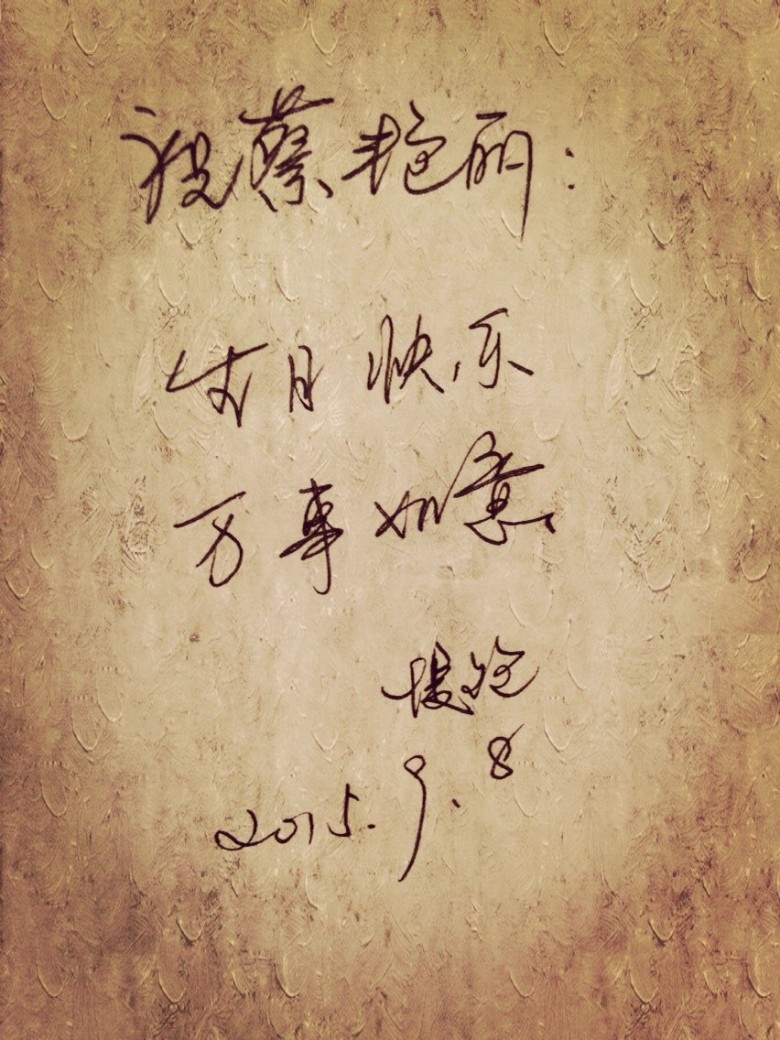 祝蔡艳丽:
生日快乐
万事如意
2015.9.8